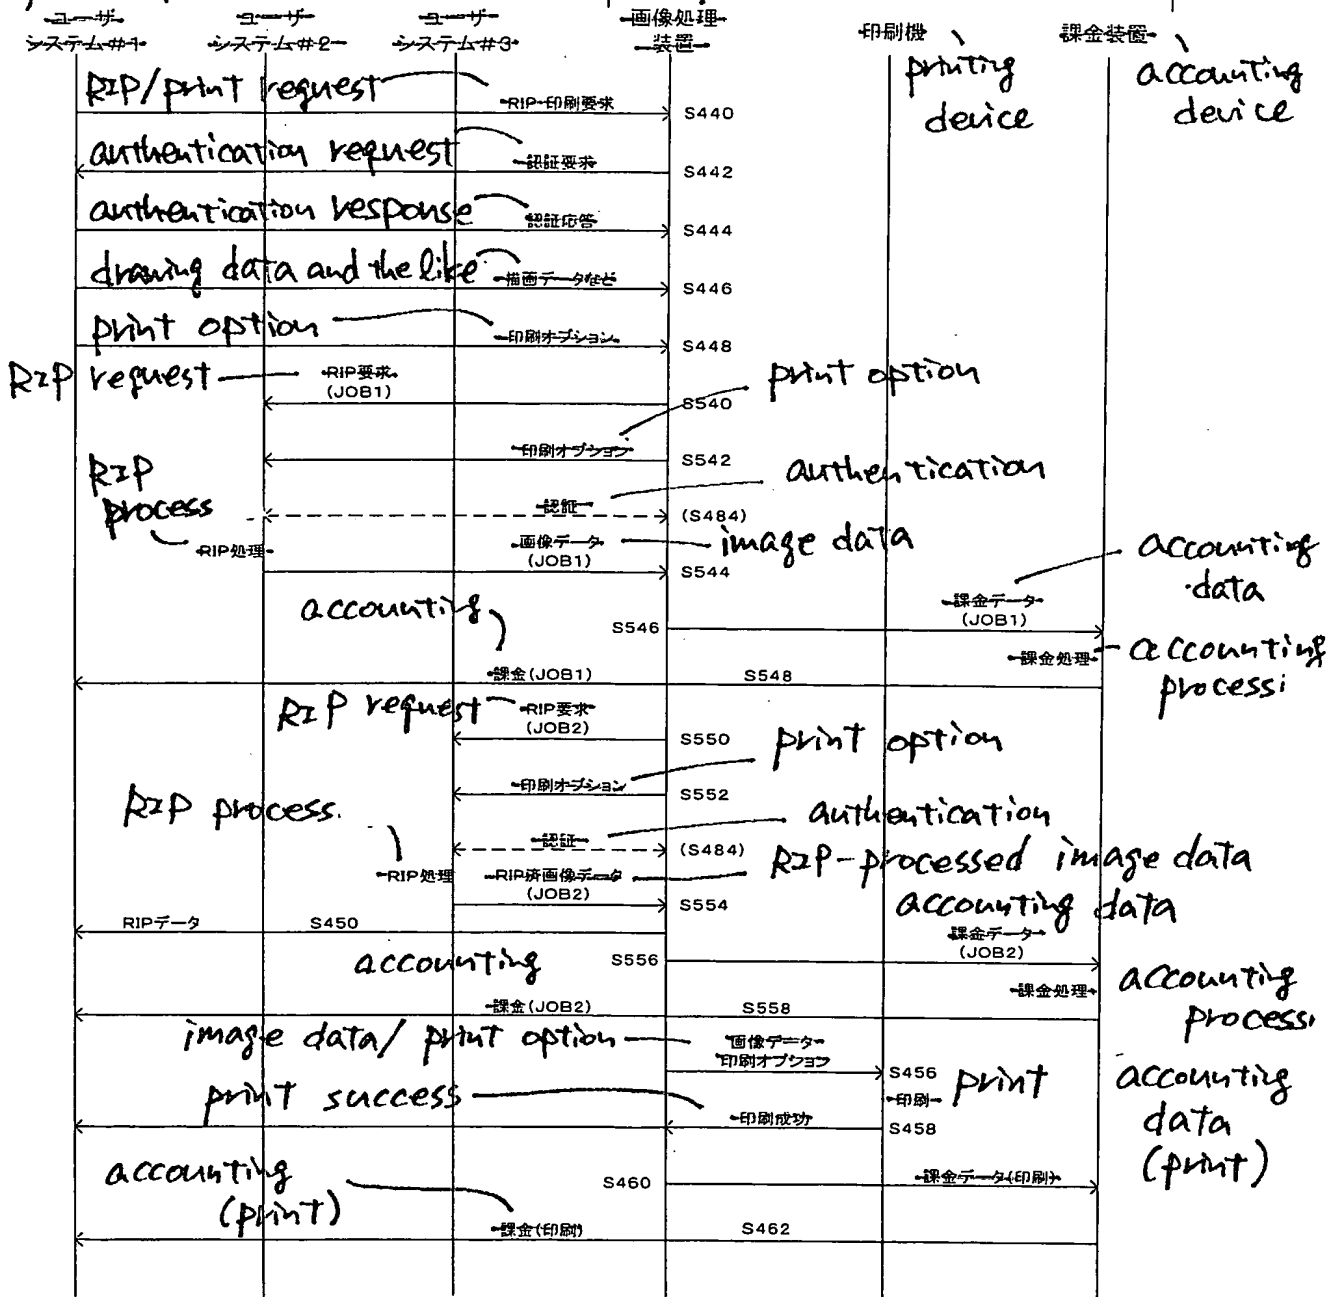 ユーザ
システム#1
ユーザ
システム#2
ユーザ
システム#3
画像処理
装置
印刷機
printing
device
課金装置
accounting
device
RIP/print request
RIP・印刷要求
S440
authentication request
認証要求
S442
authentication response
認証応答
S444
drawing data and the like
描画データなど
S446
print option
印刷オプション
S448
RIP request
RIP要求
(JOB1)
S540
print option
印刷オプション
S542
authentication
認証
(S484)
RIP
process
RIP処理
画像データ
(JOB1)
image data
S544
accounting
data
課金データ
(JOB1)
S546
課金処理
accounting
processi
accounting
課金(JOB1)
S548
RIP request
RIP要求
(JOB2)
S550
print option
印刷オプション
S552
authentication
認証
(S484)
RIP process.
RIP処理
RIP済画像データ
(JOB2)
RIP-processed image data
S554
RIPデータ
S450
accounting data
課金データ
(JOB2)
S556
課金処理
accounting
process
accounting
課金(JOB2)
S558
image data/ print option
画像データ
印刷オプション
S456
印刷
print
print success
印刷成功
S458
accounting
data
(print)
課金データ(印刷)
S460
accounting
(print)
課金(印刷)
S462